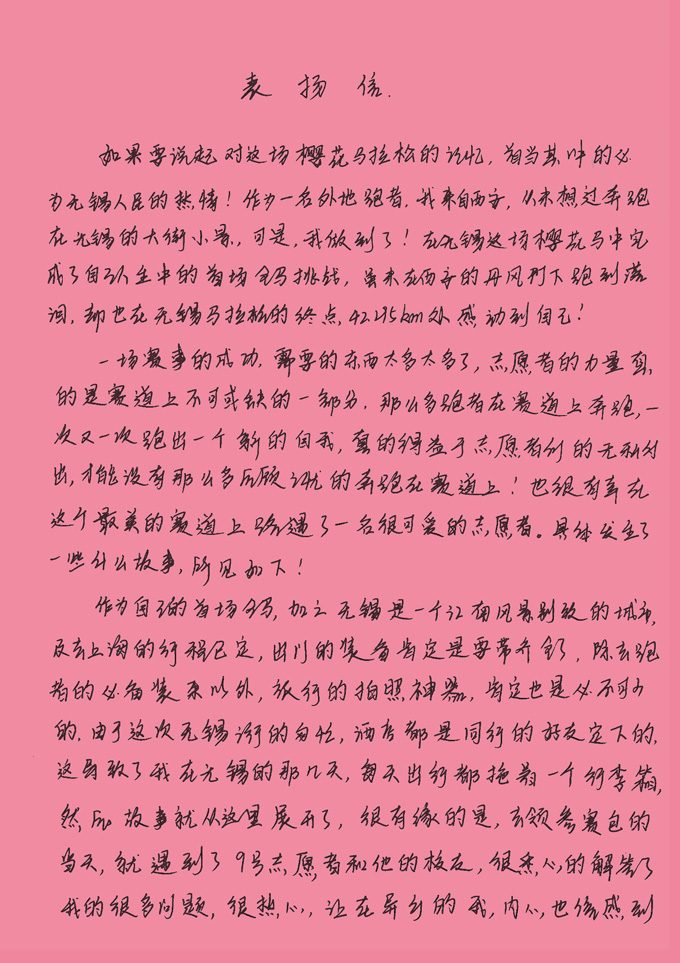 表扬信.
如果要说起对这场樱花马拉松的记忆,首当其冲的必
为无锡人民的热情!作为一名外地跑者,我来自西安,从未想过奔跑
在无锡的大街小景,可是,我做到了!在无锡这场樱花马中完
成了自己人生中的首场全马挑战,虽未在西安的丹凤门下跑到落
泪,却也在无锡马拉松的终点,42.195km处感动到自己!
一场赛事的成功,需要的东西太多太多了,志愿者的力量真
的是赛道上不可或缺的一部分,那么多跑者在赛道上奔跑,一
次又一次跑出一个新的自我,真的得益于志愿者们的无私付
出,才能没有那么多后顾之忧的奔跑在赛道上!也很有幸在
这个最美的赛道上路遇了一名很可爱的志愿者。具体发生了
一些什么故事,所见如下!
作为自己的首场全马,加之无锡是一个江南风景别致的城市,
及去上海的行程已定,出门的装备肯定是要带齐的,除去跑
者的必备装束以外,旅行的拍照神器,肯定也是必不可少
的.由于这次无锡之行的匆忙,酒店都是同行的好友定下的,
这导致了我在无锡的那几天,每天出行都拖着一个行李箱,
然后故事就从这里展开了,很有缘的是,去领参赛包的
当天,就遇到了9号志愿者和他的校友,很悉心的解答了
我的很多问题,很热心,让在异乡的我,内心也倍感到